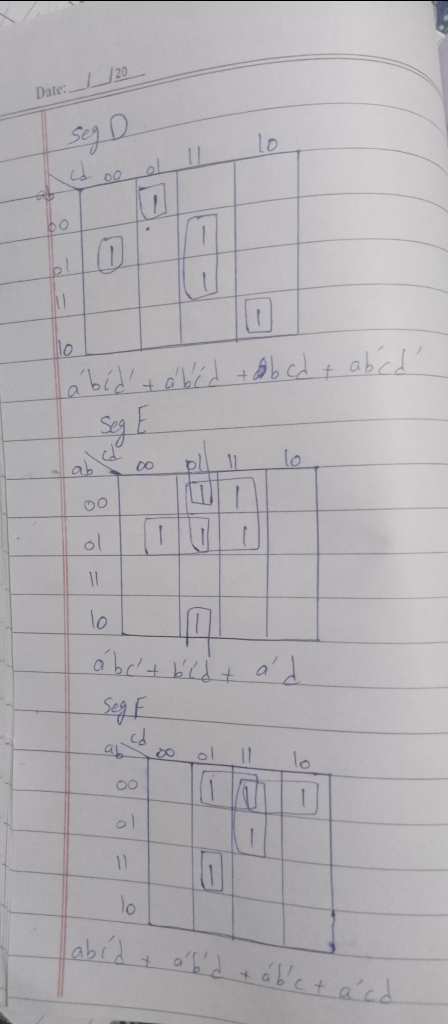 Date: __/__/20__
Seg D
cd 00 01 11 10
ab
00 1
01 1 1
11 1
10 1
a'bc'd' + a'b'c'd + bcd + ab'cd'
Seg E
ab cd 00 01 11 10
00 1 1
01 1 1 1
11
10 1
a'bc' + b'c'd + a'd
Seg F
ab cd 00 01 11 10
00 1 1 1
01 1
11 1
10
abc'd + a'b'd + a'b'c + a'cd